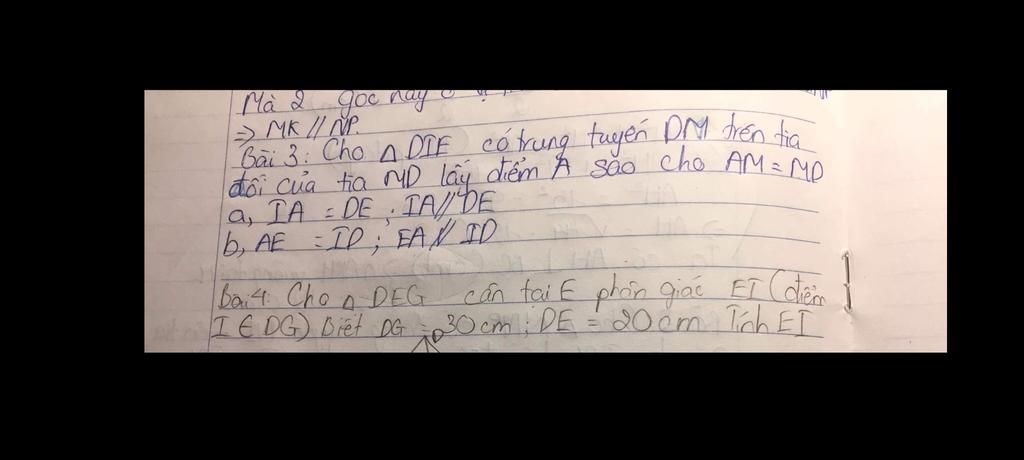 Mà 2 góc này ở vị
=> MK // NP.
Bài 3: Cho △ DIE có trung tuyến DM trên tia
đối của tia MD lấy điểm A sao cho AM = MD
a, IA = DE ; IA // DE
b, AE = ID ; EA // ID
Bài 4: Cho △ DEG cân tại E phân giác EI (điểm
I ∈ DG) Biết DG = 30 cm ; DE = 20 cm Tính EI
D